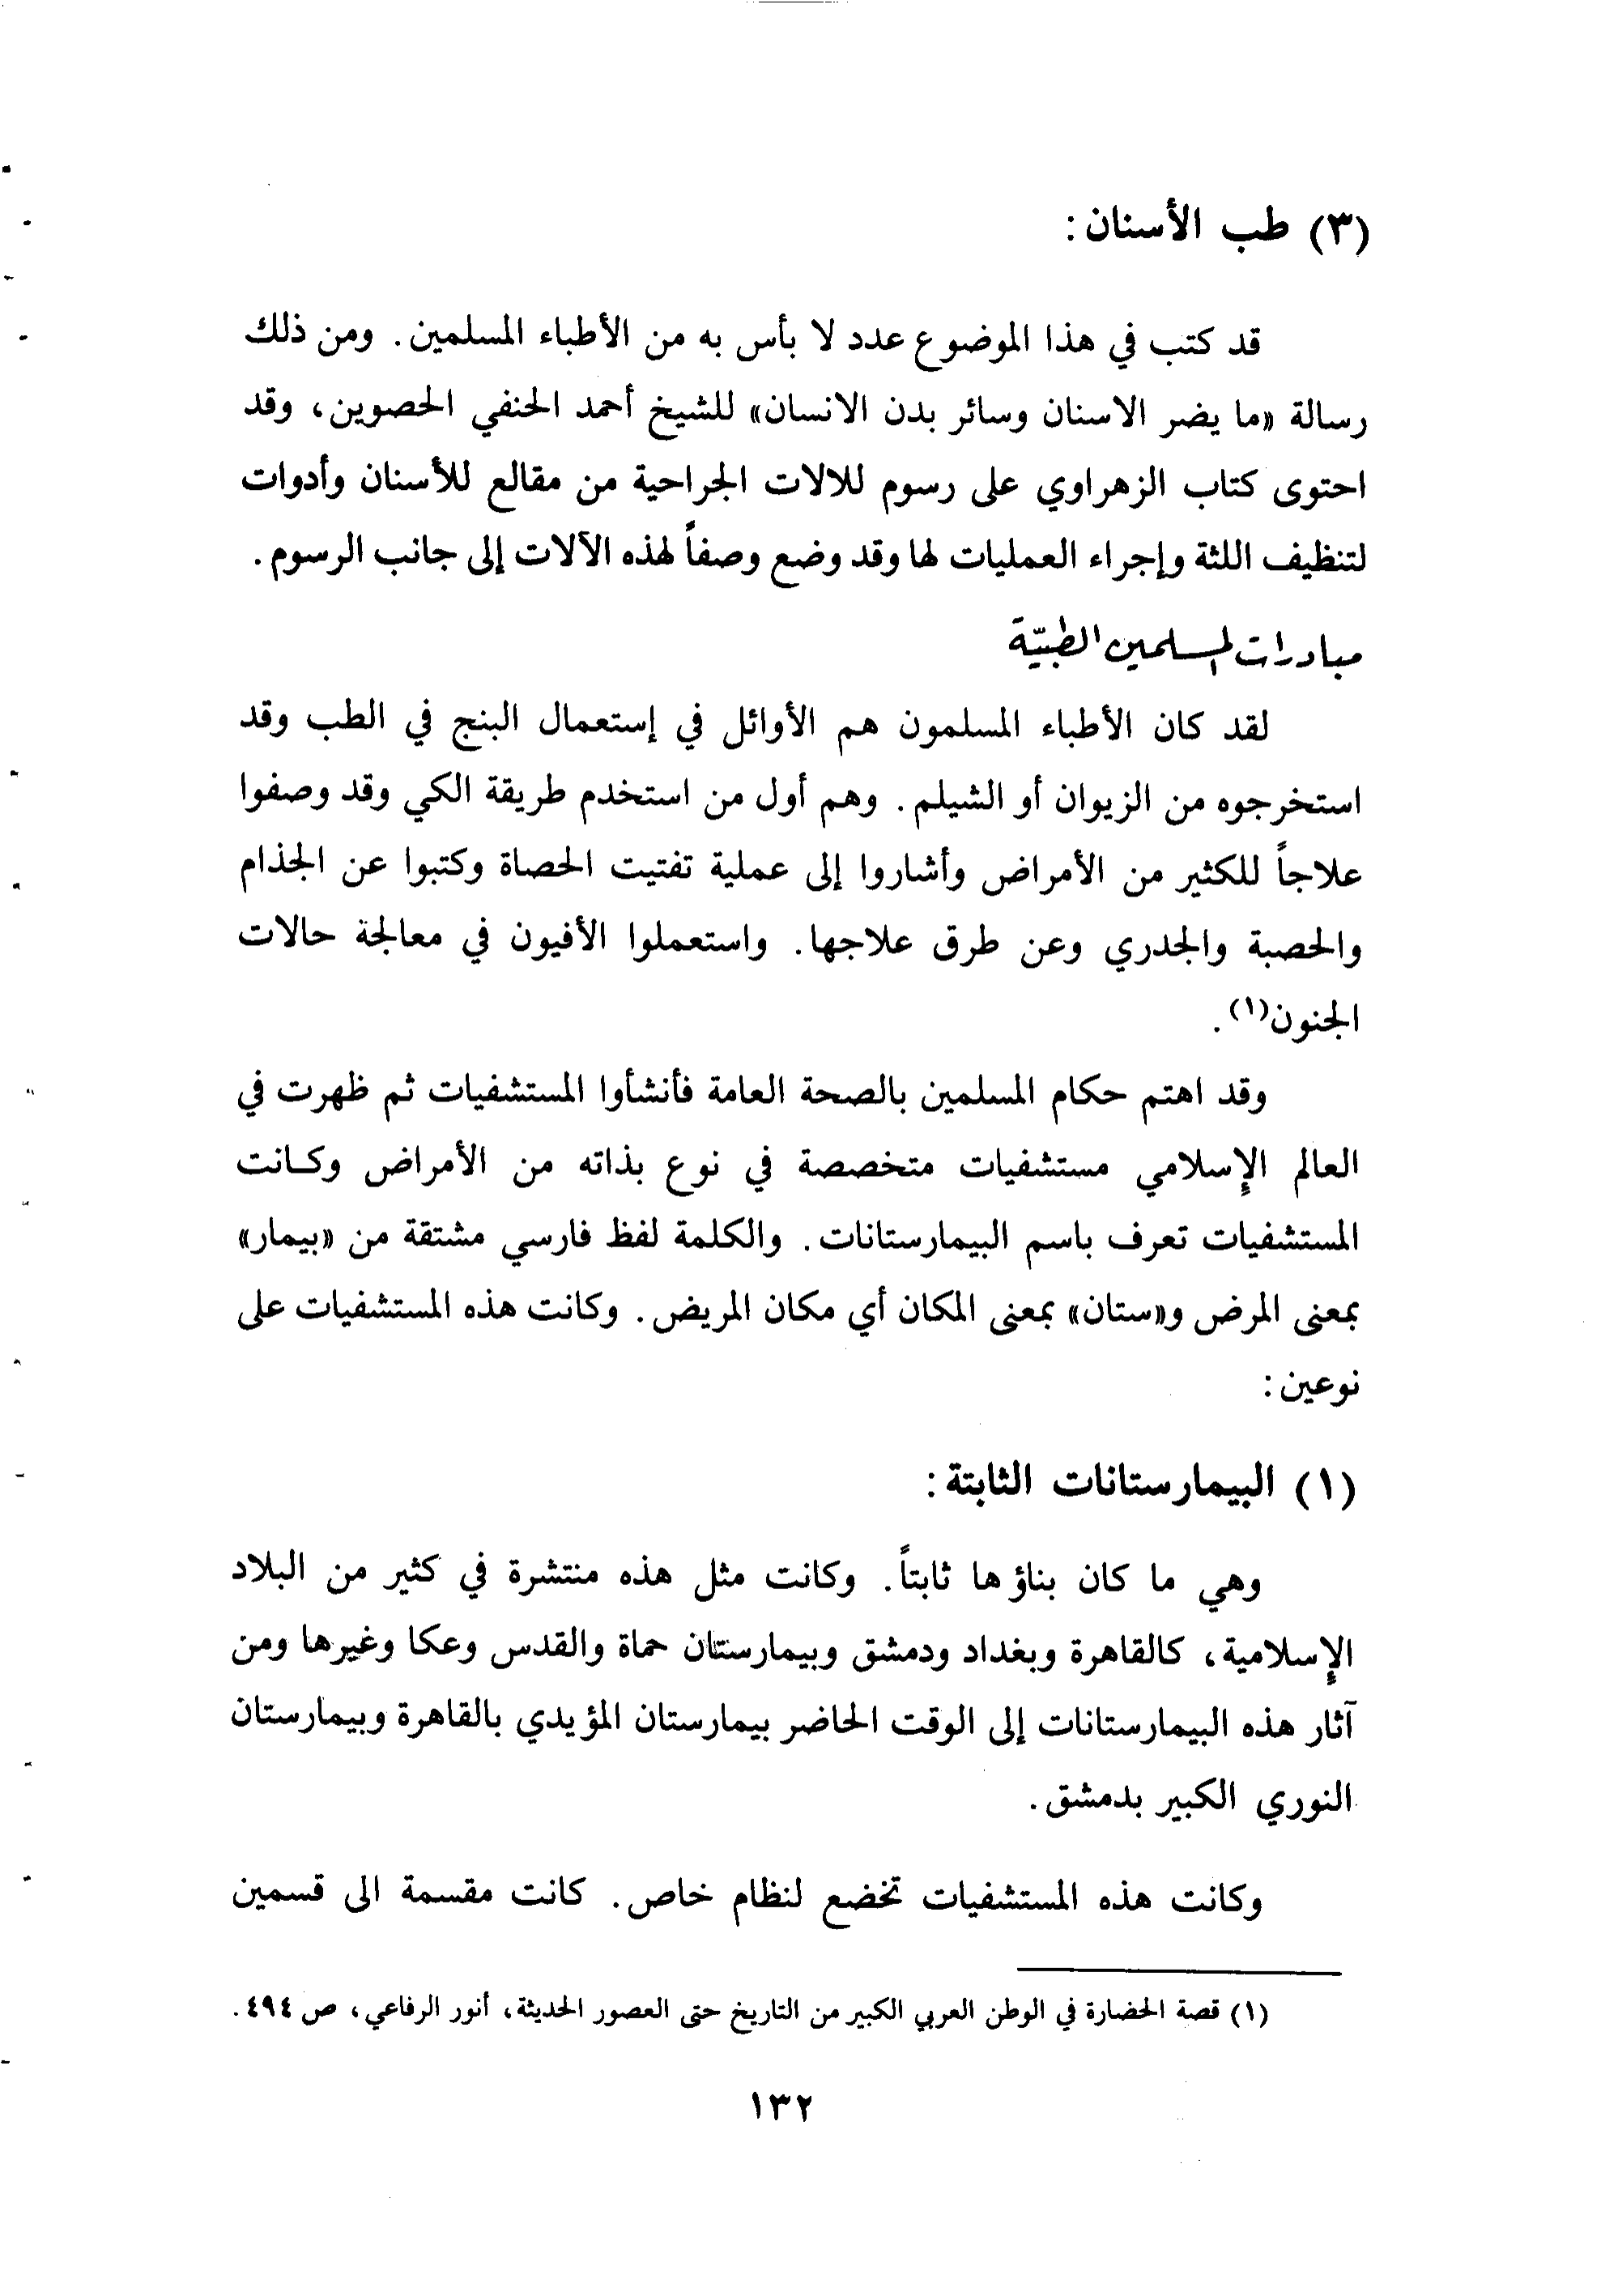 (٣) طب الأسنان :
قد كتب في هذا الموضوع عدد لا بأس به من الأطباء المسلمين . ومن ذلك
رسالة «ما يضر الاسنان وسائر بدن الانسان» للشيخ أحمد الحنفي الحصوين، وقد
احتوى كتاب الزهراوي على رسوم للالات الجراحية من مقالع للأسنان وأدوات
لتنظيف اللثة وإجراء العمليات لها وقد وضع وصفاً لهذه الآلات إلى جانب الرسوم .
مبادرات المسلمين الطبيّة
لقد كان الأطباء المسلمون هم الأوائل في إستعمال البنج في الطب وقد
استخرجوه من الزيوان أو الشيلم . وهم أول من استخدم طريقة الكي وقد وصفوا
علاجاً للكثير من الأمراض وأشاروا إلى عملية تفتيت الحصاة وكتبوا عن الجذام
والحصبة والجدري وعن طرق علاجها . واستعملوا الأفيون في معالجة حالات
الجنون(١) .
وقد اهتم حكام المسلمين بالصحة العامة فأنشأوا المستشفيات ثم ظهرت في
العالم الإسلامي مستشفيات متخصصة في نوع بذاته من الأمراض وكانت
المستشفيات تعرف باسم البيمارستانات . والكلمة لفظ فارسي مشتقة من «بيمار»
بمعنى المرض و«ستان» بمعنى المكان أي مكان المريض . وكانت هذه المستشفيات على
نوعين :
(١) البيمارستانات الثابتة :
وهي ما كان بناؤها ثابتاً . وكانت مثل هذه منتشرة في كثير من البلاد
الإسلامية، كالقاهرة وبغداد ودمشق وبيمارستان حماة والقدس وعكا وغيرها ومن
آثار هذه البيمارستانات إلى الوقت الحاضر بيمارستان المؤيدي بالقاهرة وبيمارستان
النوري الكبير بدمشق .
وكانت هذه المستشفيات تخضع لنظام خاص . كانت مقسمة الى قسمين
(١) قصة الحضارة في الوطن العربي الكبير من التاريخ حتى العصور الحديثة، أنور الرفاعي، ص ٤٩٤ .
١٣٢